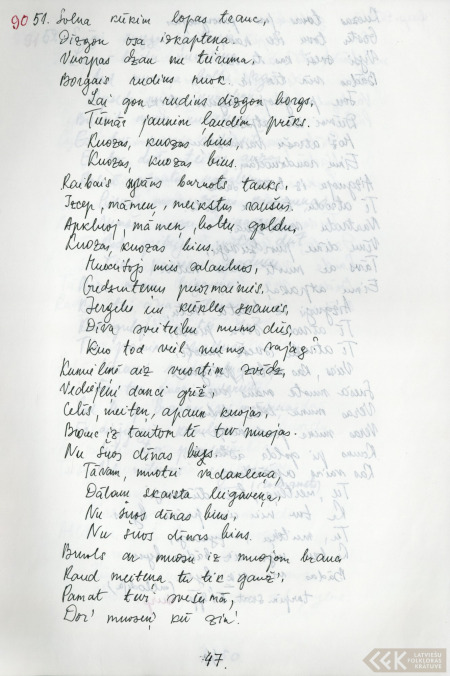 90 51. Solna kūkim lopas trauc,
Dizgon osa izkaptena.
Vuorpas dzau nu teiruma,
Borgais rudins nuok.
Lai gon rudins dizgon borgs,
Tūmār jaunim ļaudim prīks.
Kuozas, kuozas bius,
Kuozas, kuozas bius.
Raibais sivāns barnots tauks,
Izcep, māmeņ, meikstus raušus.
Apkluoj, māmeņ, boltu goldu,
Kuozas, kuozas bius.
muzikanti
Gredzentenu puormaineis.
Jergelis in kūkles skaneis,
Diva sveiteiba mums dūs,
Kuo tod veil mums vajag?
Kumeliņi aiz vuortim zvīdz,
Vediejeņi danci grīž,
Celīs, meiteņ, apaun kuojas,
Brauc iz tautom ti tev muojas.
Nu šuos dīnas bius.
Tāvam, muotei vadakleņa,
Dālam skaista leigaveņa,
Nu šuos dīnas bius,
Nu šuos dīnas bius.
Bruols ar muosu iz muojom brauc
Raud meitena tu tik gauži,
Pamat tevi svešumā,
Dor' muoseņ kū zin'.
47.
LATVIEŠU FOLKLORAS KRĀTUVE